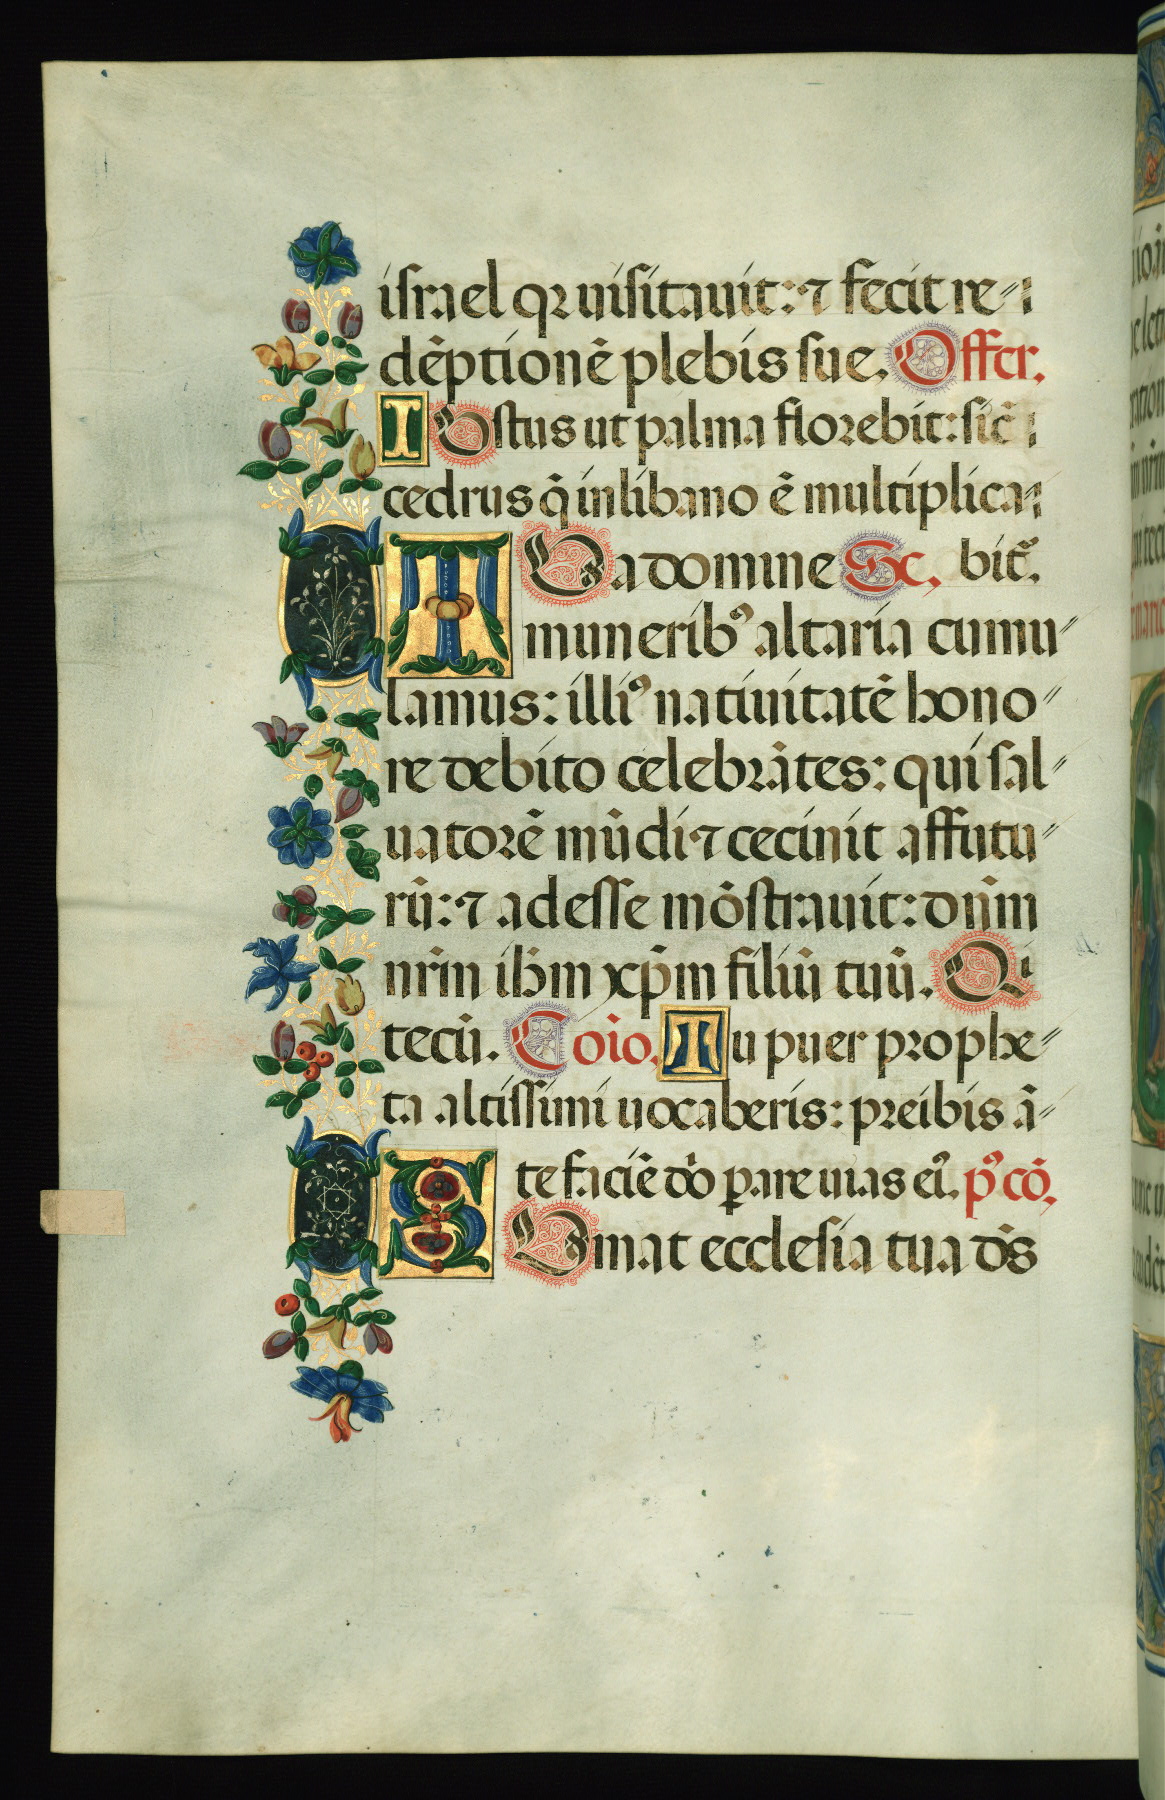 israel qꝛ uisitauit: ⁊ fecit re-
dēptionē plebis sue. Offer.
IUstus ut palma florebit: sic̄
cedrus q̄ in libano ē multiplica-
TUa domine Sc. bit̄.
munerib⁹ altaria cumu-
lamus: illi⁹ natiuitatē hono-
re debito celebrātes: qui sal-
uatorē mūdi ⁊ cecinit affutu-
rū: ⁊ adesse mōstrauit: dn̄m
nr̄m ih̄m xp̄m filiū tuū. Qi
tecū. Coīo. Tu puer prophe-
ta altissimi uocaberis: preibis ā-
te faciē dō ꝑare uias ei⁹. p⁹ cō.
SUmat ecclesia tua dō̄s